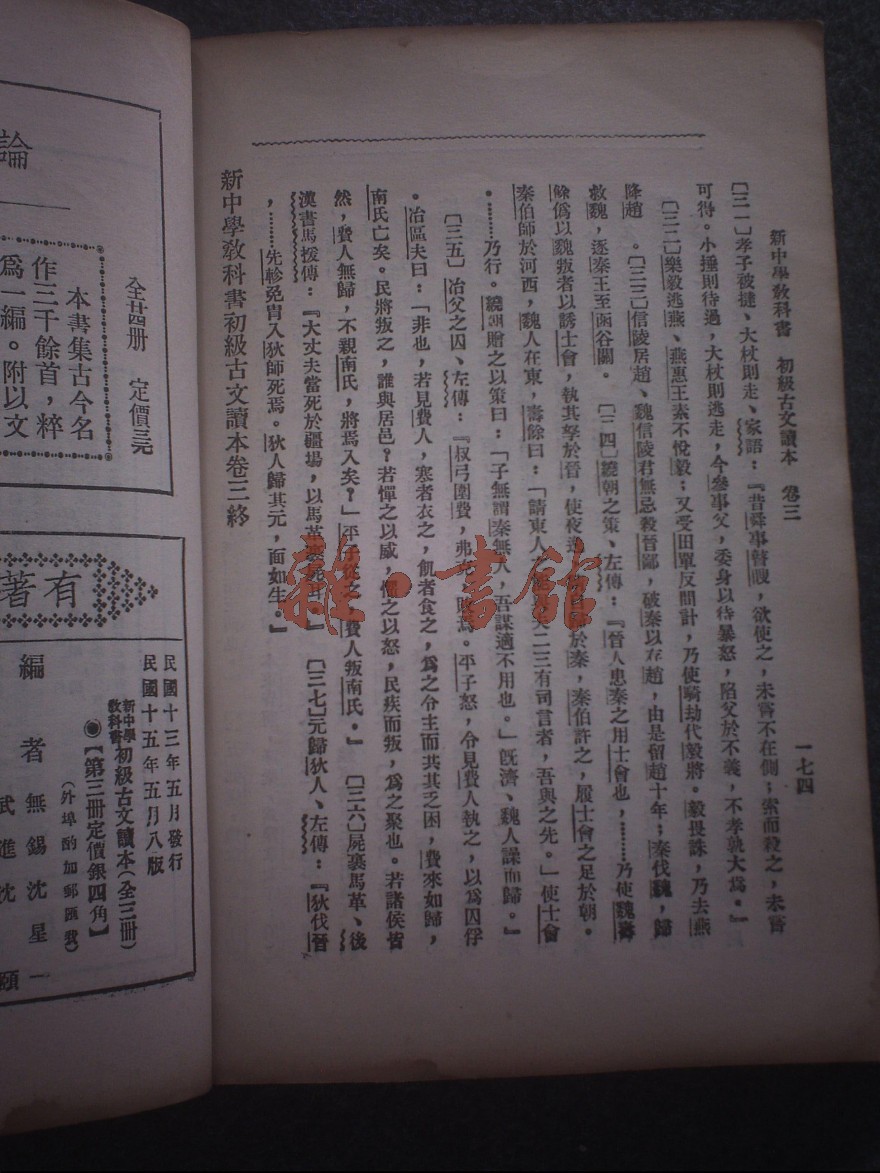 新中學敎科書 初級古文讀本 卷三
一七四
〔三一〕孝子被捶、大杖則走、家語：『昔舜事瞽瞍，欲使之，未嘗不在側；索而殺之，未嘗
可得。小捶則待過，大杖則逃走，今參事父，委身以待暴怒，陷父於不義，不孝孰大焉。』
〔三二〕樂毅逃燕、燕惠王素不悅毅；又受田單反間計，乃使騎劫代毅將。毅畏誅，乃去燕
降趙。〔三三〕信陵居趙、魏信陵君無忌殺晉鄙，破秦以存趙，由是留趙十年；秦伐魏，歸
救魏，逐秦王至函谷關。〔三四〕繞朝之策、左傳：『晉人患秦之用士會也，………乃使魏壽
餘僞以魏叛者以誘士會，執其孥於晉，使夜逸，請自歸於秦，秦伯許之，履士會之足於朝。
秦伯師於河西，魏人在東，壽餘曰：「請東人之能與夫二三有司言者，吾與之先。」使士會
。………乃行。繞朝贈之以策曰：「子無謂秦無人，吾謀適不用也。」旣濟、魏人譟而歸。』
〔三五〕冶父之囚、左傳：『叔弓圍費，弗克，敗焉。平子怒，令見費人執之，以爲囚俘
。冶區夫曰：「非也，若見費人，寒者衣之，飢者食之，爲之令主而共其乏困，費來如歸，
南氏亡矣。民將叛之，誰與居邑？若憚之以威，懼之以怒，民疾而叛，爲之聚也。若諸侯皆
然，費人無歸，不親南氏，將焉入矣？」平子從之，費人叛南氏。』〔三六〕屍裹馬革、後
漢書馬援傳：『大丈夫當死於疆場，以馬革裹屍回。』〔三七〕元歸狄人、左傳：『狄伐晉
，………先軫免胄入狄師死焉。狄人歸其元，面如生。』
新中學敎科書初級古文讀本卷三終
雜·書館
論
全廿四册 定價三元
本書集古今名
作三千餘首，粹
爲一編。附以文
有著
民國十三年五月發行
民國十五年五月八版
新中學敎科書初級古文讀本（全三册）
◉【第三册定價銀四角】
（外埠酌加郵匯費）
編者 無錫沈星一
武進沈頤